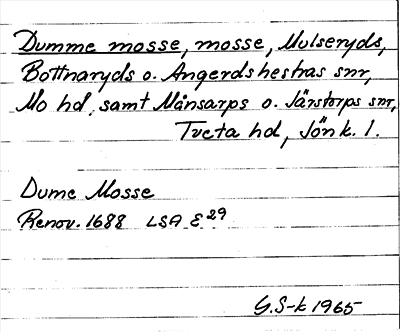 Dumme mosse, mosse, Mulseryds,
Bottnaryds o. Angerdshestras snr,
Mo hd, samt Månsarps o. Järstorps snr,
Tveta hd, Jönk. l.
Dume Mosse
Renov. 1688 LSA E 29
G.S-k 1965